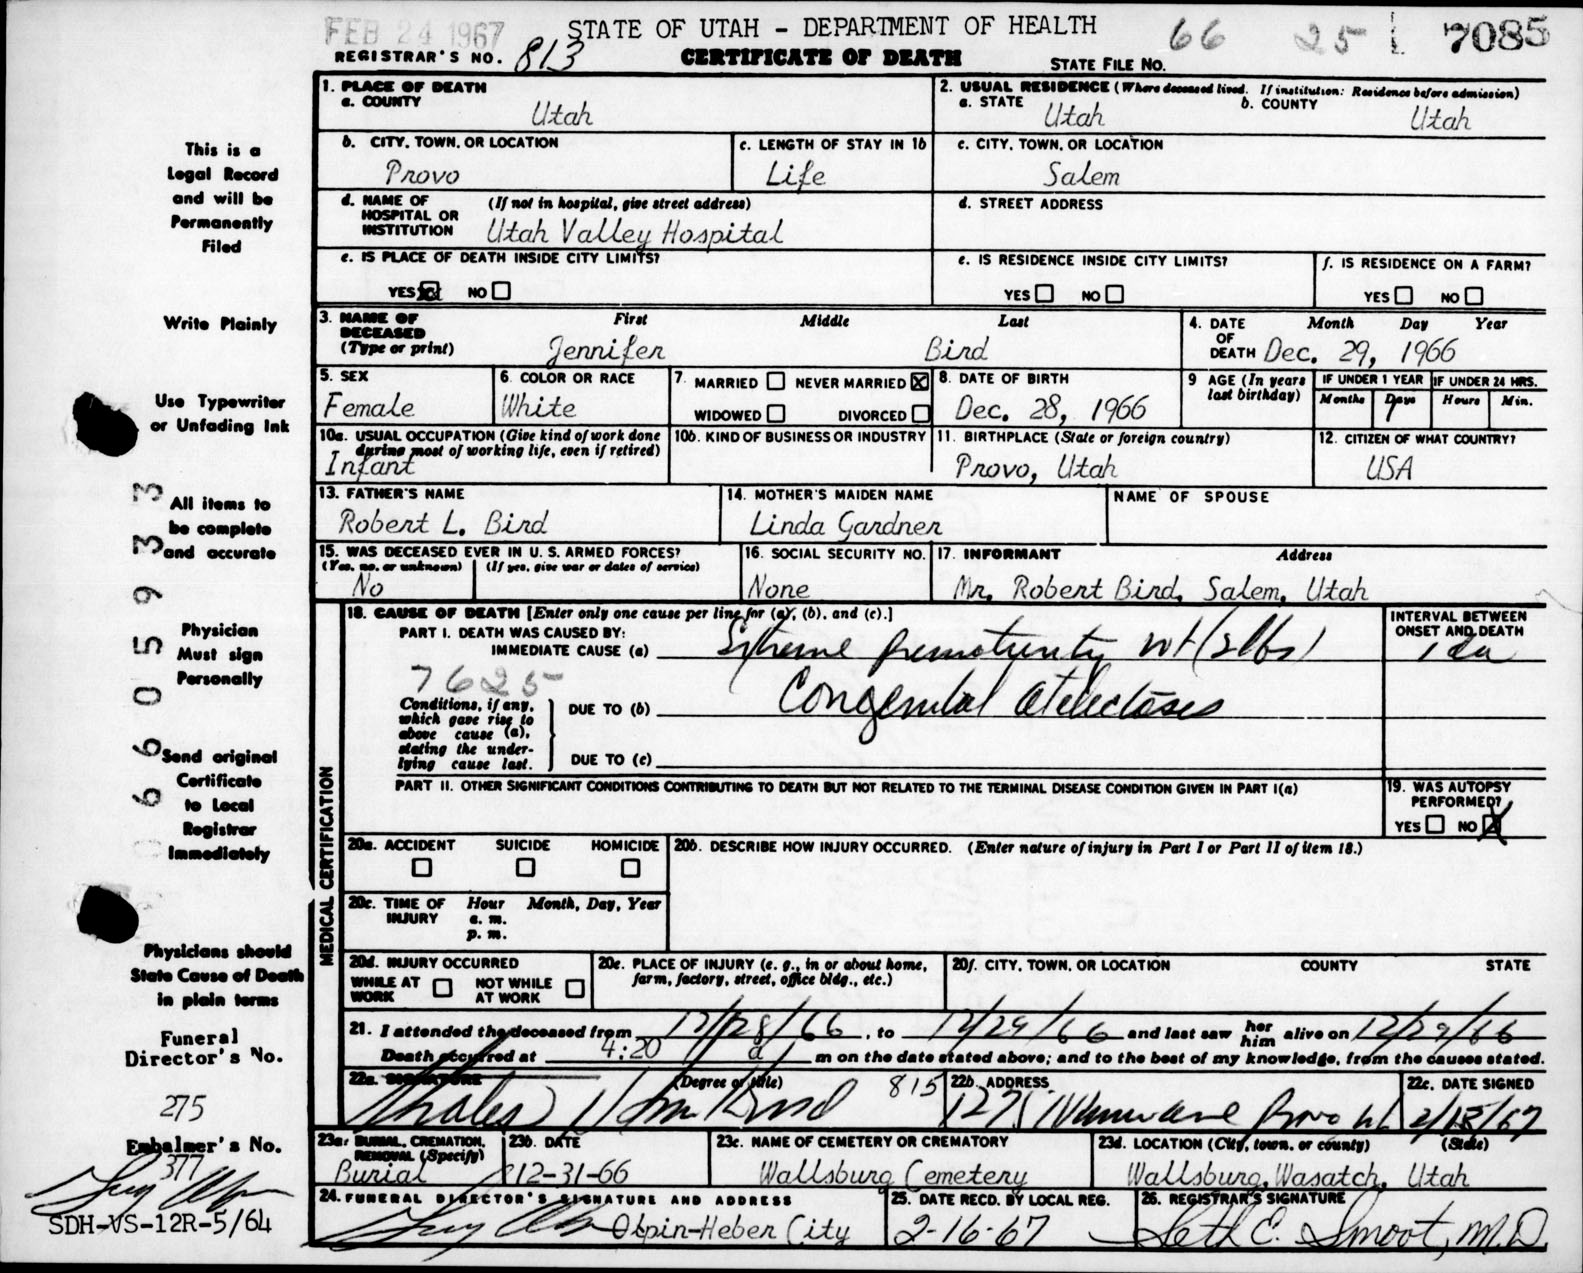 FEB 24 1967
STATE OF UTAH - DEPARTMENT OF HEALTH
66 25 7085
REGISTRAR'S NO. 813
CERTIFICATE OF DEATH
STATE FILE NO.
This is a
Legal Record
and will be
Permanently
Filed
Write Plainly
Use Typewriter
or Unfading Ink
All items to
be complete
and accurate
Physician
Must sign
Personally
Send original
Certificate
to Local
Registrar
Immediately
Physicians should
State Cause of Death
in plain terms
Funeral
Director's No.
275
Embalmer's No.
377
SDH-VS-12R-5/64
06605933
1. PLACE OF DEATH
a. COUNTY
Utah
2. USUAL RESIDENCE (Where deceased lived. If institution: Residence before admission)
a. STATE b. COUNTY
Utah Utah
b. CITY, TOWN, OR LOCATION
Provo
c. LENGTH OF STAY IN 1b
Life
c. CITY, TOWN, OR LOCATION
Salem
d. NAME OF HOSPITAL OR INSTITUTION (If not in hospital, give street address)
Utah Valley Hospital
d. STREET ADDRESS
e. IS PLACE OF DEATH INSIDE CITY LIMITS?
YES NO
e. IS RESIDENCE INSIDE CITY LIMITS?
YES NO
f. IS RESIDENCE ON A FARM?
YES NO
3. NAME OF DECEASED (Type or print) First Middle Last
Jennifer Bird
4. DATE OF DEATH Month Day Year
Dec. 29, 1966
5. SEX
Female
6. COLOR OR RACE
White
7. MARRIED NEVER MARRIED
WIDOWED DIVORCED
8. DATE OF BIRTH
Dec. 28, 1966
9 AGE (In years last birthday)
IF UNDER 1 YEAR IF UNDER 24 HRS.
Months Days Hours Min.
1
10a. USUAL OCCUPATION (Give kind of work done during most of working life, even if retired)
Infant
10b. KIND OF BUSINESS OR INDUSTRY
11. BIRTHPLACE (State or foreign country)
Provo, Utah
12. CITIZEN OF WHAT COUNTRY?
USA
13. FATHER'S NAME
Robert L. Bird
14. MOTHER'S MAIDEN NAME
Linda Gardner
NAME OF SPOUSE
15. WAS DECEASED EVER IN U. S. ARMED FORCES?
(Yes, no, or unknown) (If yes, give war or dates of service)
No
16. SOCIAL SECURITY NO.
None
17. INFORMANT Address
Mr. Robert Bird, Salem, Utah
MEDICAL CERTIFICATION
18. CAUSE OF DEATH [Enter only one cause per line for (a), (b), and (c).]
PART I. DEATH WAS CAUSED BY:
IMMEDIATE CAUSE (a) Extreme prematurity wt (2 lbs)
INTERVAL BETWEEN ONSET AND DEATH
1 da
7625
Conditions, if any, which gave rise to above cause (a), stating the underlying cause last.
DUE TO (b) Congenital atelectasis
DUE TO (c)
PART II. OTHER SIGNIFICANT CONDITIONS CONTRIBUTING TO DEATH BUT NOT RELATED TO THE TERMINAL DISEASE CONDITION GIVEN IN PART I(a)
19. WAS AUTOPSY PERFORMED?
YES NO
20a. ACCIDENT SUICIDE HOMICIDE
20b. DESCRIBE HOW INJURY OCCURRED. (Enter nature of injury in Part I or Part II of item 18.)
20c. TIME OF INJURY Hour Month, Day, Year
a. m.
p. m.
20d. INJURY OCCURRED
WHILE AT WORK NOT WHILE AT WORK
20e. PLACE OF INJURY (e. g., in or about home, farm, factory, street, office bldg., etc.)
20f. CITY, TOWN, OR LOCATION COUNTY STATE
21. I attended the deceased from 12/28/66, to 12/29/66 and last saw her him alive on 12/29/66
Death occurred at 4:20 a m on the date stated above; and to the best of my knowledge, from the causes stated.
22a. SIGNATURE (Degree or title)
815
22b. ADDRESS
Provo Ut
22c. DATE SIGNED
2/15/67
23a. BURIAL, CREMATION, REMOVAL (Specify)
Burial
23b. DATE
12-31-66
23c. NAME OF CEMETERY OR CREMATORY
Wallsburg Cemetery
23d. LOCATION (City, town, or county) (State)
Wallsburg, Wasatch, Utah
24. FUNERAL DIRECTOR'S SIGNATURE AND ADDRESS
Olpin-Heber City
25. DATE RECD. BY LOCAL REG.
2-16-67
26. REGISTRAR'S SIGNATURE
Seth E. Smoot, M.D.